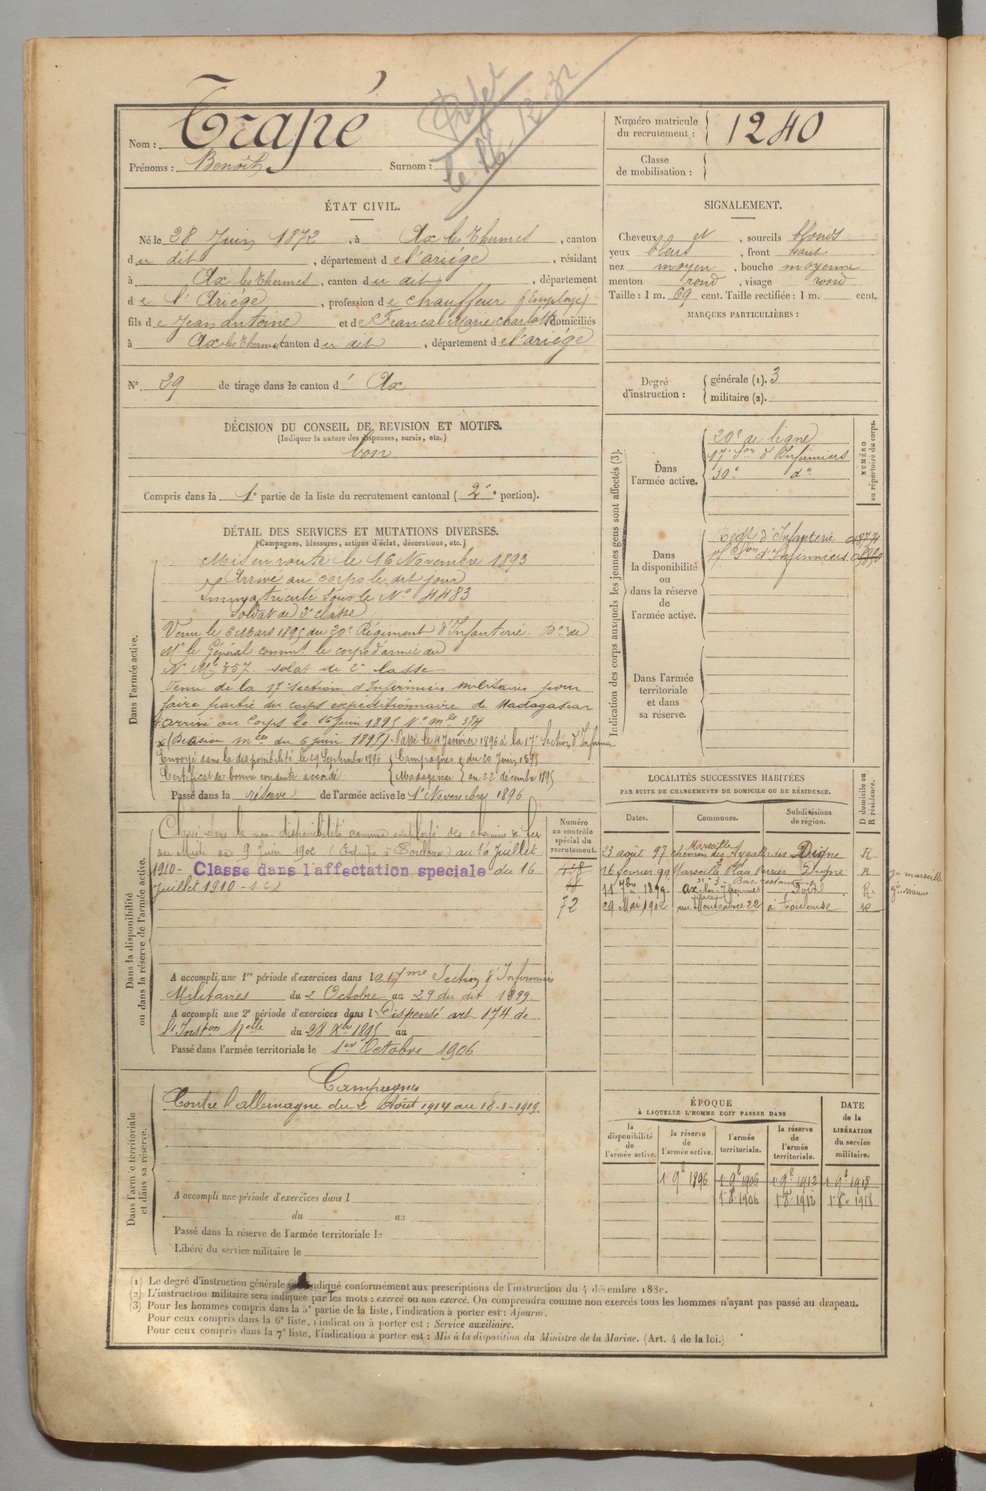 Nom : Trapé
Prénoms : Benoît Surnom :
le 16 - 12 - 32
Numéro matricule du recrutement : 1240
Classe de mobilisation :
ÉTAT CIVIL.
Né le 28 Juin 1872, à Ax les Thermes, canton
du dit, département de l'ariège, résidant
à Ax les Thermes, canton du dit, département
de l'Ariège, profession de chauffeur (Employé)
fils de Jean antoine et de Marie charlotte domiciliés
à Ax les Thermes canton du dit, département de l'ariège
N° 39 de tirage dans le canton d' Ax
SIGNALEMENT.
Cheveux et, sourcils blonds
yeux bleus, front haut
nez moyen, bouche moyenne
menton rond, visage rond
Taille : 1 m. 69 cent. Taille rectifiée : 1 m. cent.
MARQUES PARTICULIÈRES :
Degré d'instruction : générale (1). 3
militaire (2).
DÉCISION DU CONSEIL DE REVISION ET MOTIFS.
(Indiquer la nature des dispenses, sursis, etc.)
bon
Compris dans la 1e partie de la liste du recrutement cantonal ( 2e portion).
DÉTAIL DES SERVICES ET MUTATIONS DIVERSES.
(Campagnes, blessures, actions d'éclat, décorations, etc.)
Dans l'armée active.
Mis en route le 16 Novembre 1893
Arrivé au corps le dit jour
Immatriculé sous le N° 4483
Soldat de 2e classe
Venu le 6 Mars 1895 du 20e Régiment d'Infanterie
Mr le Général command. le corps d'armée
N° Mle 857 soldat de 2e classe
Venu de la 17e section d'Infirmiers militaires pour
faire partie du corps expéditionnaire de Madagascar
arrivé au Corps le 15 juin 1895 N° mle 374
(Décision mlle du 6 juin 1895). Passé le 4 Janvier 1896 à la 17e Section d'Infirmiers
Envoyé dans la disponibilité le 29 Septembre 1896 Campagne du 20 Juin 1895
Certificat de bonne conduite accordé Madagascar au 22 décembre 1895
Passé dans la réserve de l'armée active le 1er Novembre 1896
Indication des corps auxquels les jeunes gens sont affectés (3).
NUMÉRO au répertoire du corps.
Dans l'armée active.
20e de ligne
17e Son d'Infirmiers
30e do
Dans la disponibilité ou dans la réserve de l'armée active.
Regt d'Infanterie
17e Son d'Infirmiers
Dans l'armée territoriale et dans sa réserve.
Dans la disponibilité ou dans la réserve de l'armée active.
Classé dans la non disponibilité comme employé des chemins de fer
du Midi du 9 Juin 1902 au 16 Juillet
1910 - Classé dans l'affectation spéciale du 16
Juillet 1910
Numéro au contrôle spécial du recrutement.
72
A accompli une 1re période d'exercices dans la 17me Section d'Infirmiers
Militaires du 2 Octobre au 29 du dit 1899.
A accompli une 2e période d'exercices dans l Dispensé art 174 de
l'Inston Mlle du 28 Xbre 1895 au
Passé dans l'armée territoriale le 1er Octobre 1906
LOCALITÉS SUCCESSIVES HABITÉES
PAR SUITE DE CHANGEMENTS DE DOMICILE OU DE RÉSIDENCE.
Dates. Communes. Subdivisions de région. D domicile ou R résidence.
23 août 97 Marseille chemin des Aygalades Digne R
26 février 99 Marseille Digne R
11 7bre 1899. Ax-les-Thermes Foix R.
29 Mai 1902 22 à Toulouse R
Dans l'armée territoriale et dans sa réserve.
Campagnes
Contre l'allemagne du 2 Août 1914 au 18-1-1919
A accompli une période d'exercices dans l
du au
Passé dans la réserve de l'armée territoriale le
Libéré du service militaire le
ÉPOQUE
À LAQUELLE L'HOMME DOIT PASSER DANS
la disponibilité de l'armée active. la réserve de l'armée active. l'armée territoriale. la réserve de l'armée territoriale. DATE de la LIBÉRATION du service militaire.
1 9e 1896 1 9e 1906 1 9e 1912 1 9e 1918
1 8e 1906 1 8e 1912 1 8e 1918
(1) Le degré d'instruction générale sera indiqué conformément aux prescriptions de l'instruction du 4 décembre 1889.
(2) L'instruction militaire sera indiquée par les mots : exercé ou non exercé. On comprendra comme non exercés tous les hommes n'ayant pas passé au drapeau.
(3) Pour les hommes compris dans la 5e partie de la liste, l'indication à porter est : Ajourné.
Pour ceux compris dans la 6e liste, l'indication à porter est : Service auxiliaire.
Pour ceux compris dans la 7e liste, l'indication à porter est : Mis à la disposition du Ministre de la Marine. (Art. 4 de la loi.)